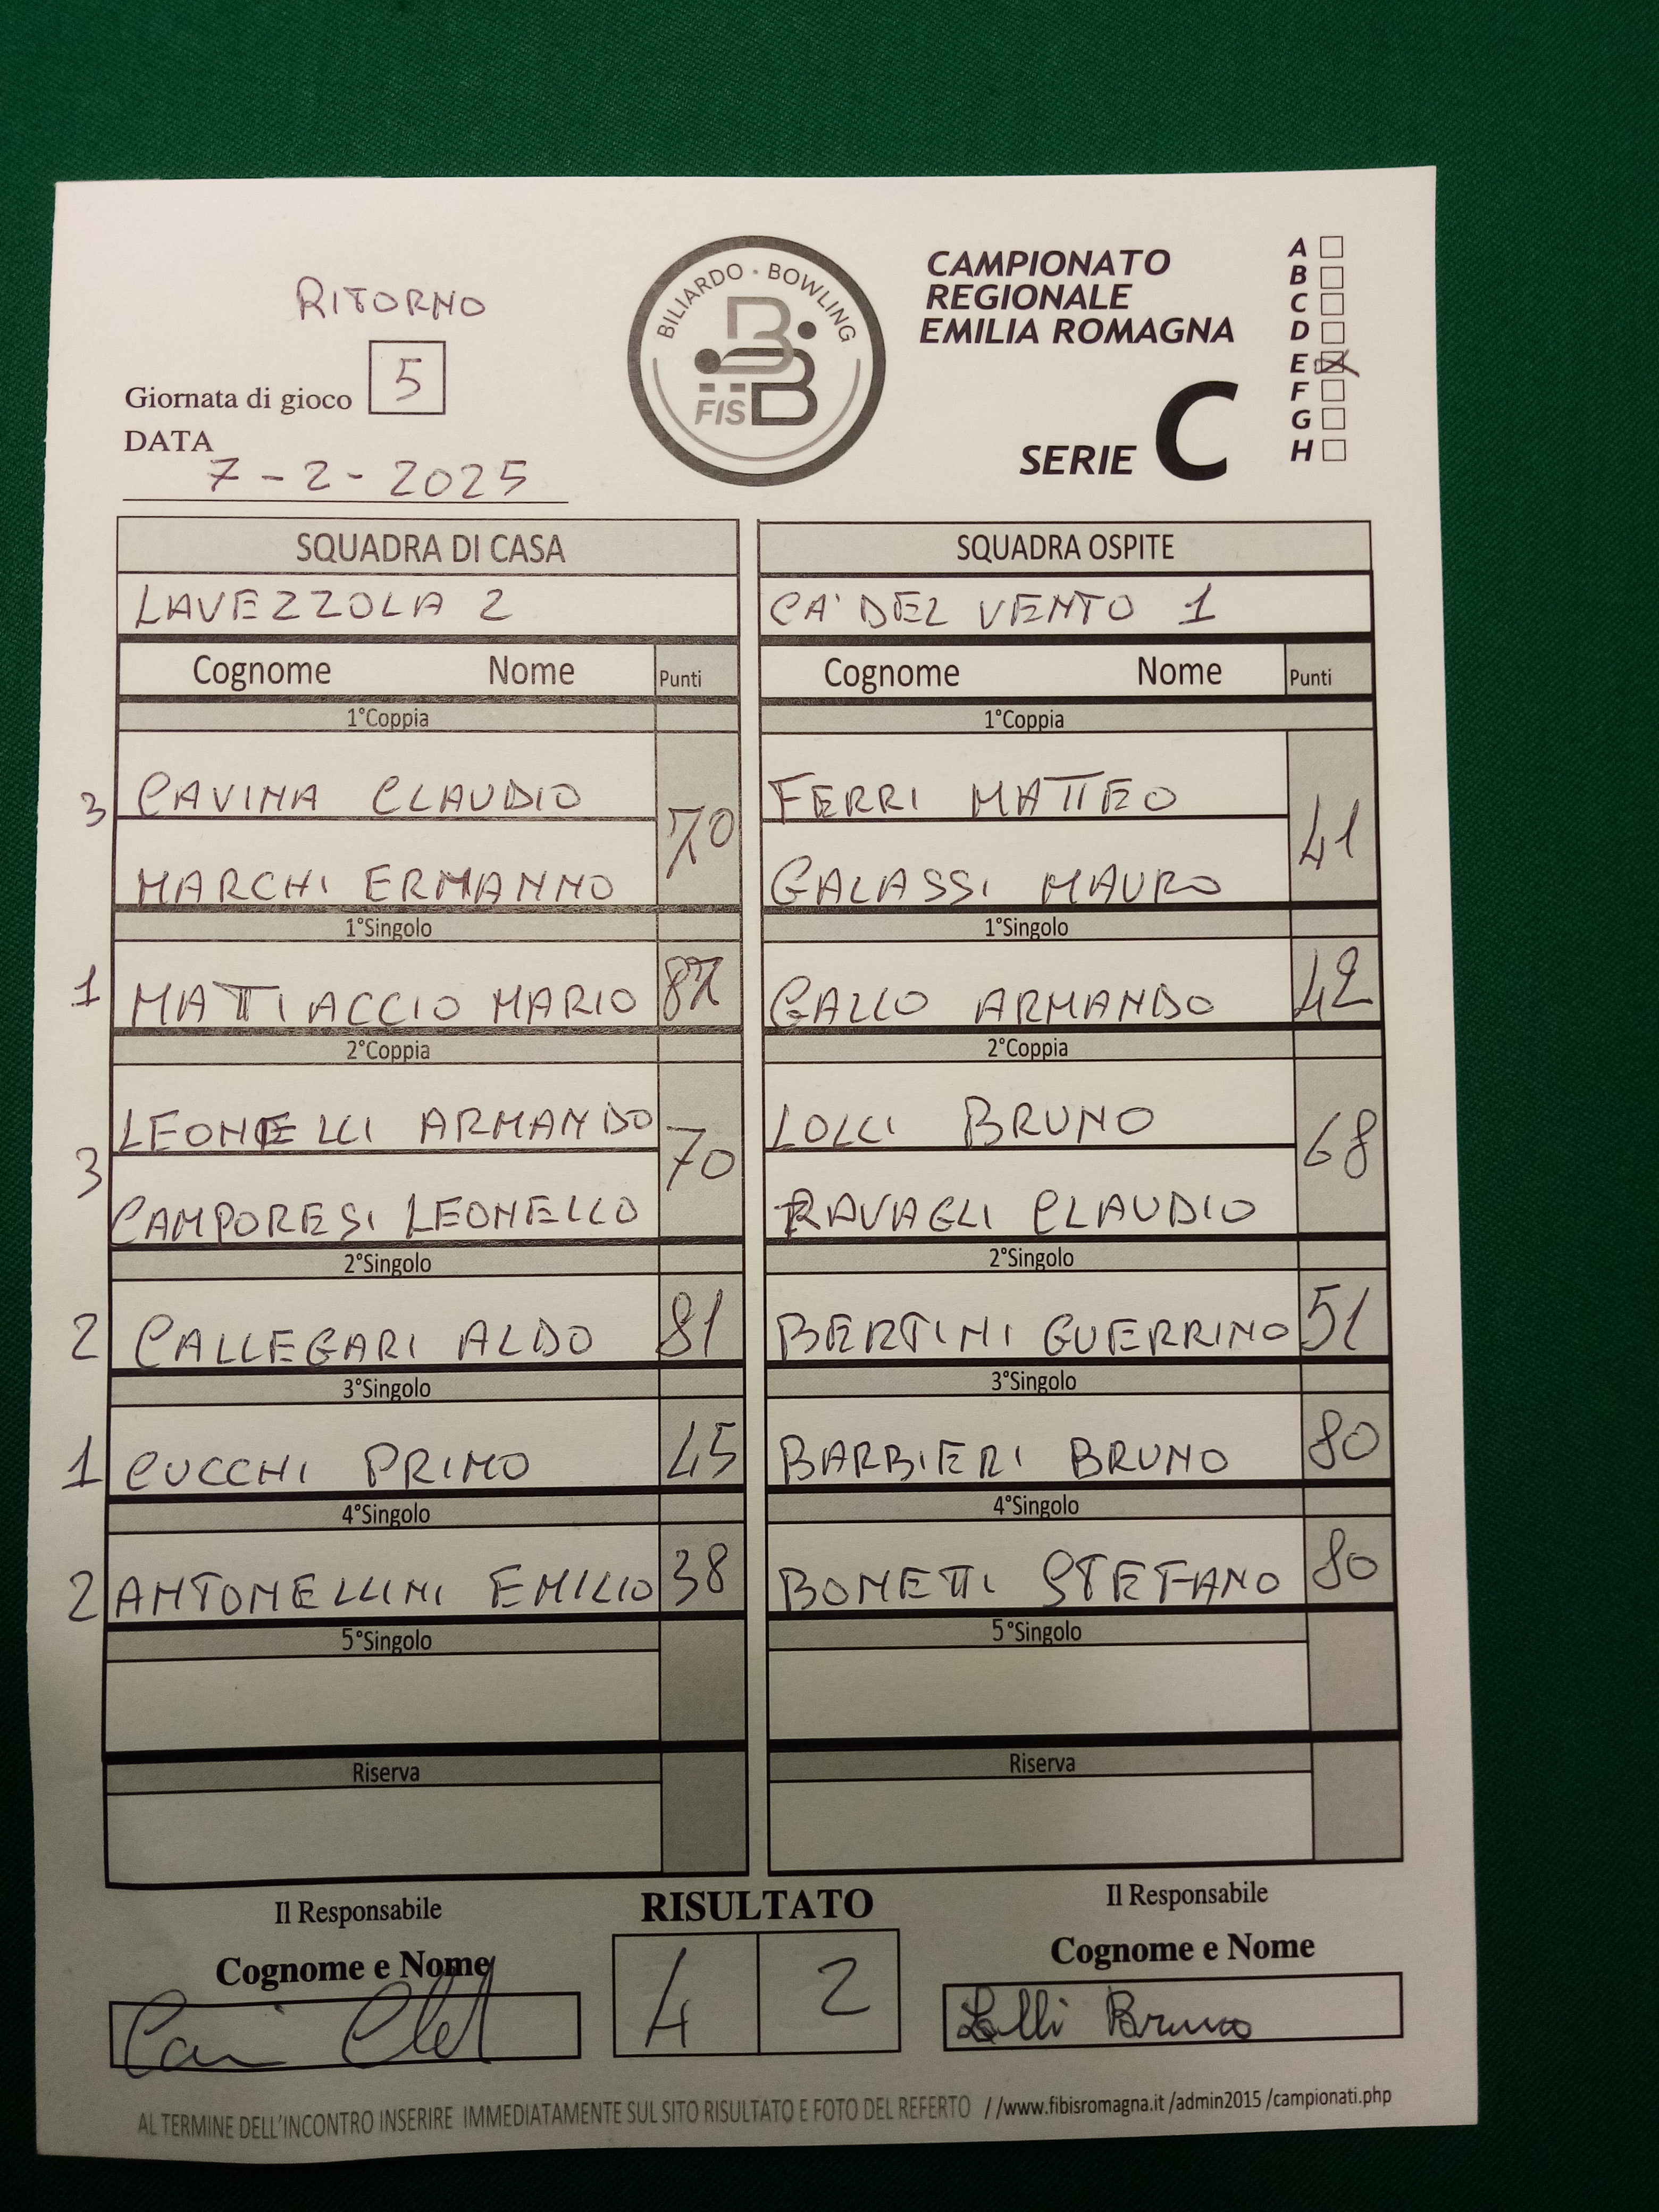 RITORNO
Giornata di gioco 5
DATA
7-2-2025
BILIARDO · BOWLING
FISBB
CAMPIONATO
REGIONALE
EMILIA ROMAGNA
SERIE C
A
B
C
D
E
F
G
H
SQUADRA DI CASA
LAVEZZOLA 2
Cognome Nome Punti
1°Coppia
3 CAVINA CLAUDIO 70
MARCHI ERMANNO
1°Singolo
1 MATTIACCIO MARIO 87
2°Coppia
LEONELLI ARMANDO 70
3 CAMPORESI LEONELLO
2°Singolo
2 CALLEGARI ALDO 81
3°Singolo
1 CUCCHI PRIMO 45
4°Singolo
2 ANTONELLINI EMILIO 38
5°Singolo
Riserva
SQUADRA OSPITE
CA' DEL VENTO 1
Cognome Nome Punti
1°Coppia
FERRI MATTEO 41
GALASSI MAURO
1°Singolo
GALLO ARMANDO 42
2°Coppia
LOLLI BRUNO 68
RAVAGLI CLAUDIO
2°Singolo
BERTINI GUERRINO 51
3°Singolo
BARBIERI BRUNO 80
4°Singolo
BONETTI STEFANO 80
5°Singolo
Riserva
Il Responsabile
Cognome e Nome
RISULTATO
4 2
Il Responsabile
Cognome e Nome
Lolli Bruno
AL TERMINE DELL'INCONTRO INSERIRE IMMEDIATAMENTE SUL SITO RISULTATO E FOTO DEL REFERTO //www.fibisromagna.it /admin2015 /campionati.php